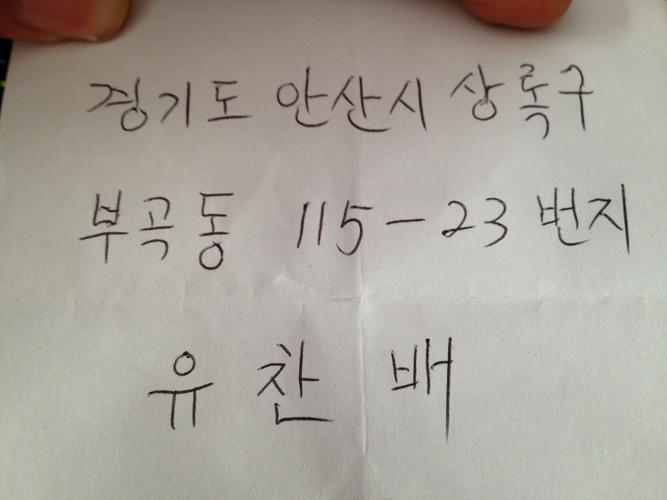 경기도 안산시 상록구
부곡동 115-23 번지
유찬배